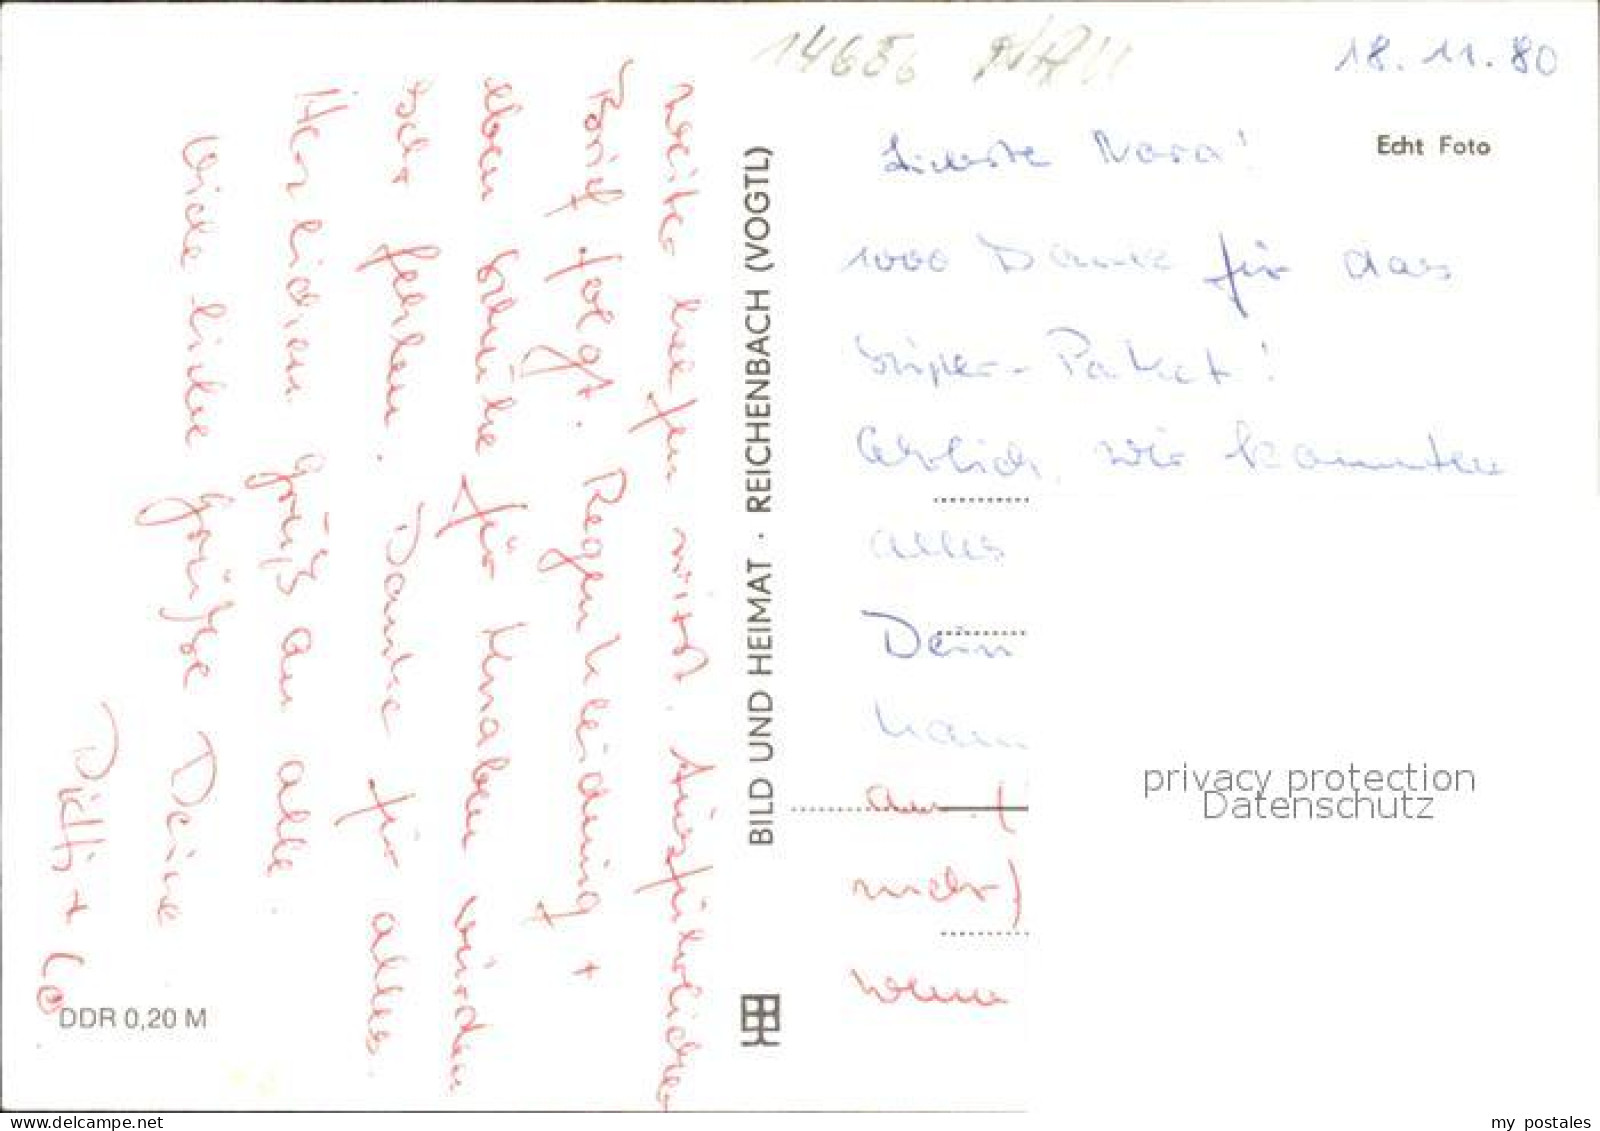 14656
18.11.80
Echt Foto
Liebste Nora!
1000 Dank für das
Super-Paket!
Ehrlich, wir konnten
alles
Dein
kam
auf
mehr)
wenn
weiter helfen wirst. Ausführlicher
Brief folgt. Regenkleidung +
eben Schuhe für Knaben würden
sehr fehlen. Danke für alles.
Herzlichen Gruß an alle.
Viele liebe Grüße Deine
Ditti + Co
BILD UND HEIMAT · REICHENBACH (VOGTL)
DDR 0,20 M
privacy protection
Datenschutz
delcampe.net
my_postales